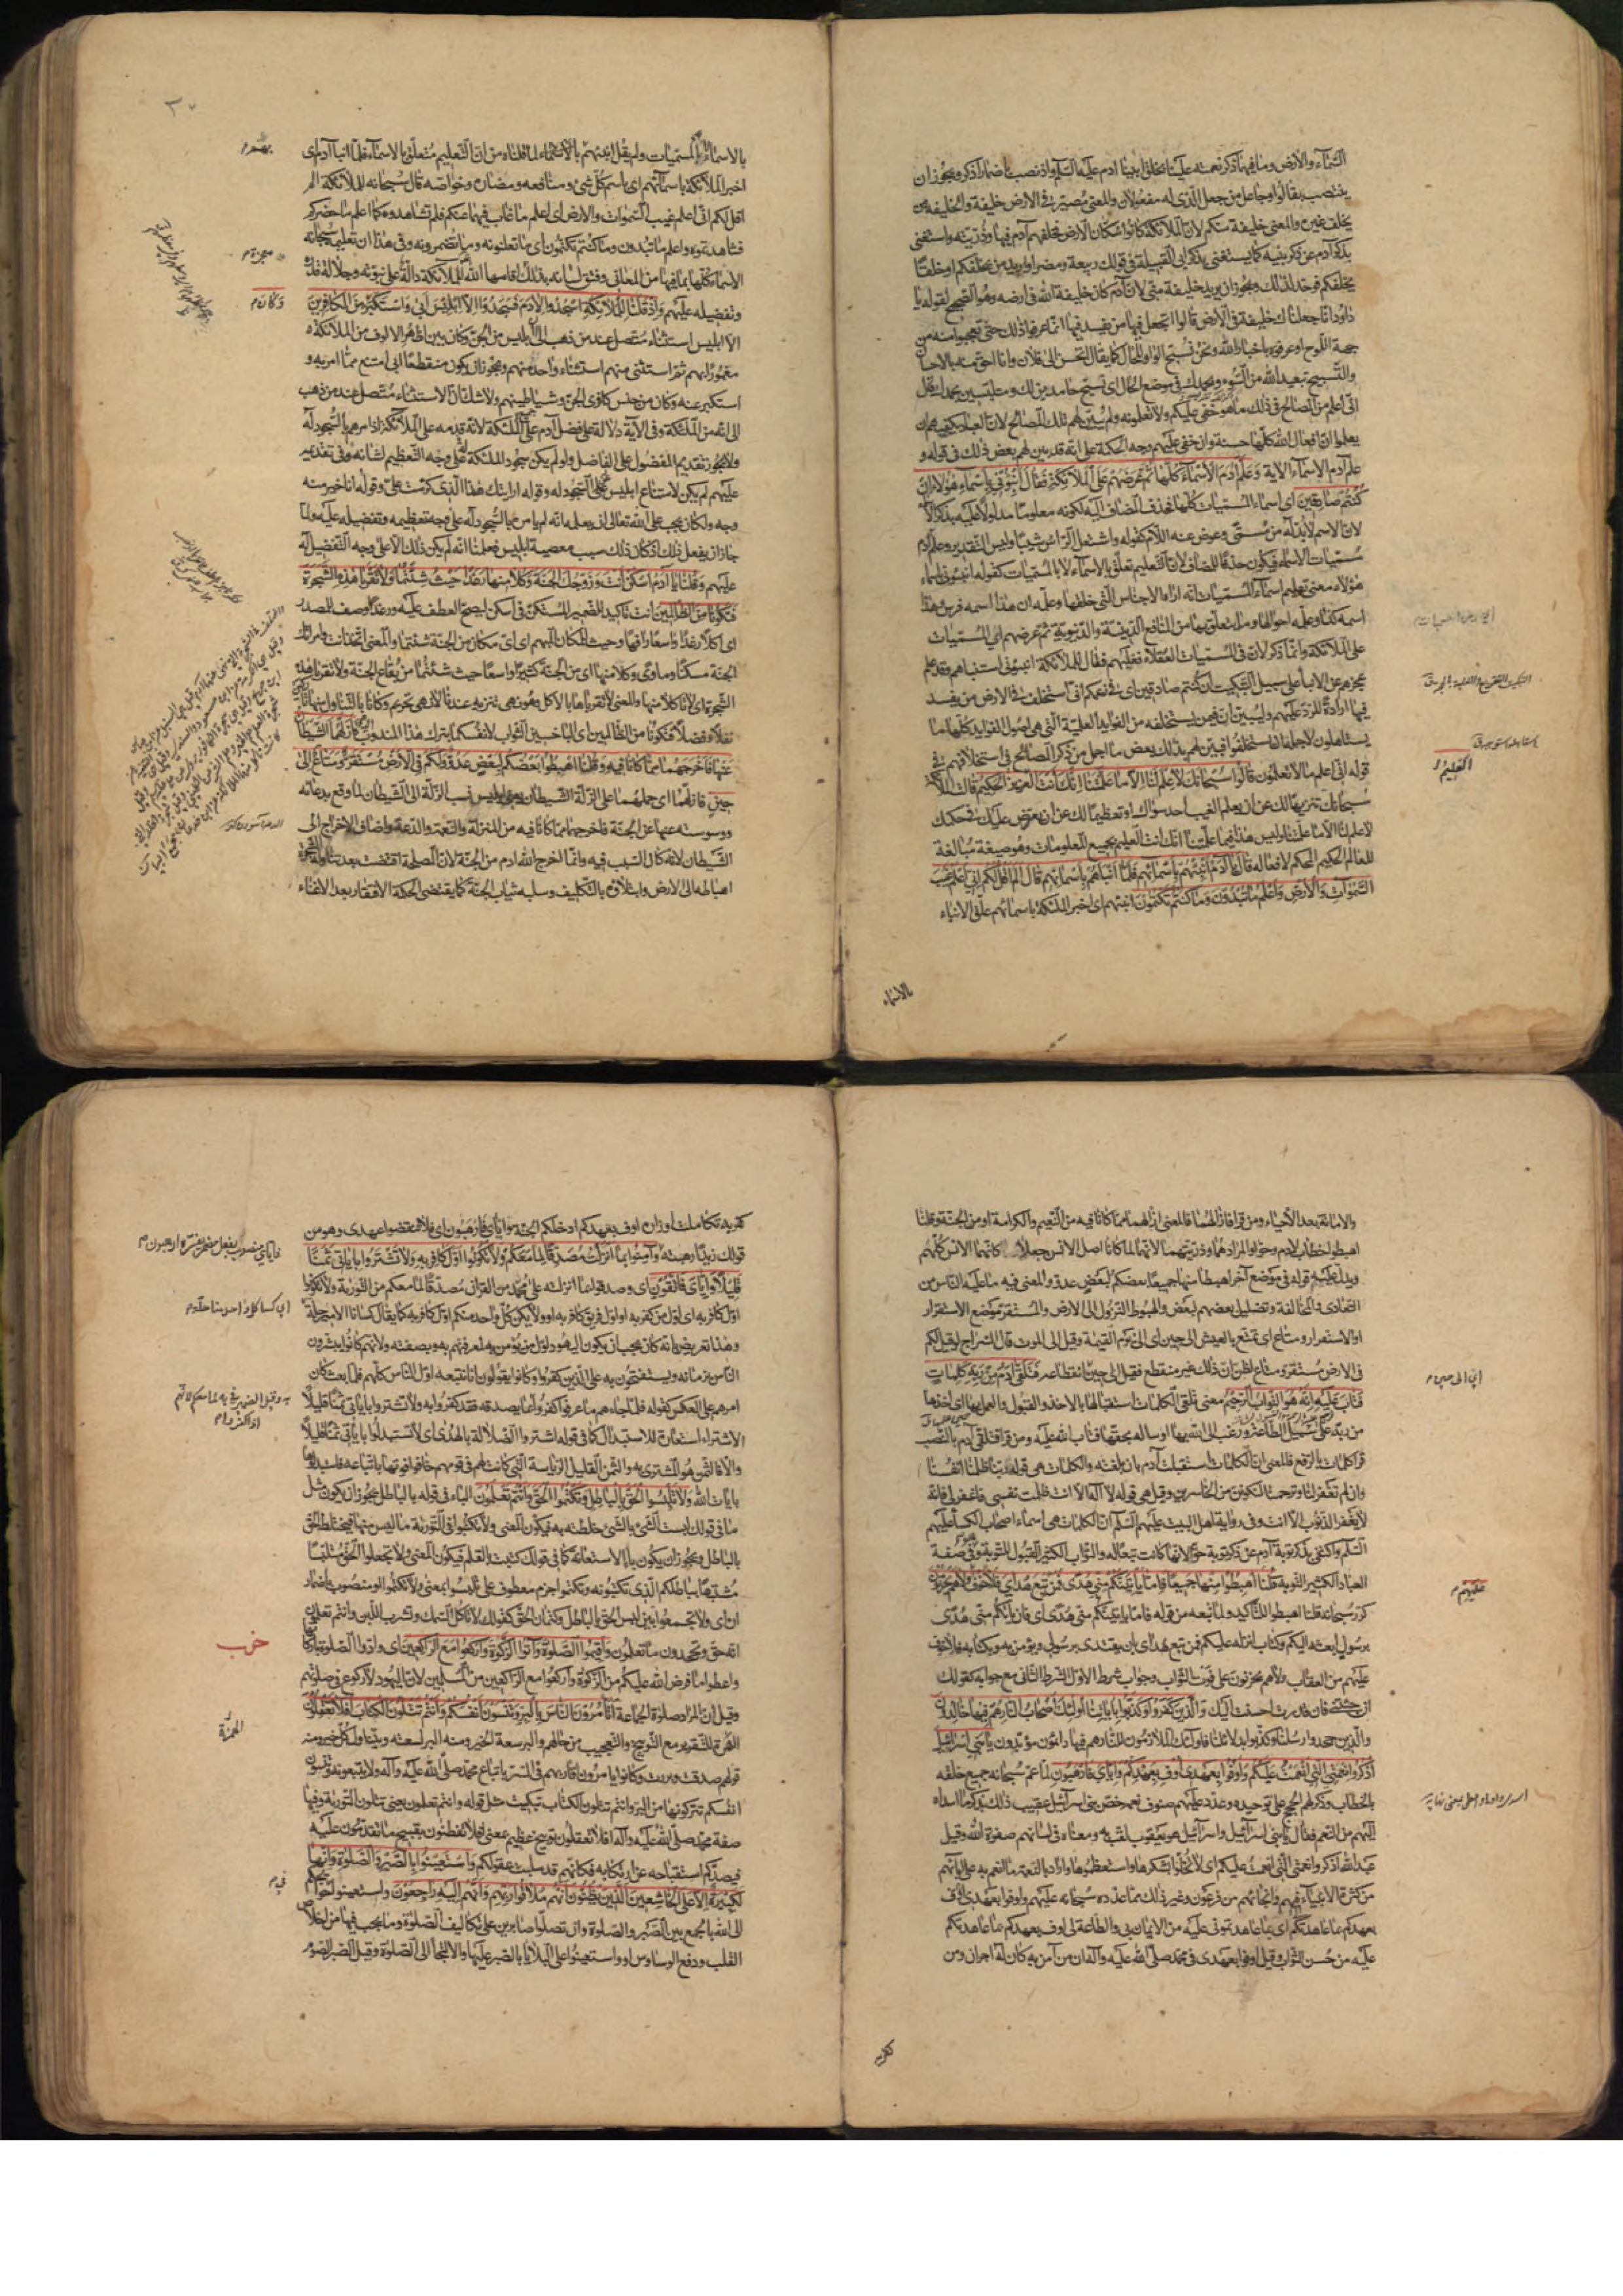 السماء والأرض وما فيها أذكر نعمته علينا بخلق أبينا آدم عليه السلم واذ نصب باضمار أذكر ويجوز ان
ينتصب بقالوا وجاعل من جعل الذي له مفعولان والمعنى مصير في الارض خليفة والخليفة من
يخلف غيره والمعنى خليفة منكم لان الملائكة كانوا سكان الارض فخلفهم آدم فيها وذريته واستغنى
بذكر آدم عن ذكر بنيه كما يستغنى بذكر ابي القبيلة في قولك ربيعة ومضر او اريد من يخلفكم او خلقا
يخلفكم فوحد لذلك ويجوز ان يريد خليفة مني لان آدم كان خليفة الله في ارضه وهو الصحيح لقوله يا
داود انا جعلناك خليفة في الأرض قالوا اتجعل فيها من يفسد فيها انما عرفوا ذلك حتى تعجبوا منه من
جهة اللوح او عرفوه باخبار الله ونحن نسبح الواو للحال كما يقال اتحسن الى فلان وانا احق منه بالاحسان
والتسبيح تبعيد الله من السوء وبحمدك في موضع الحال اي نسبح حامدين لك ومتلبسين بحمدك قال
اني اعلم من المصالح في ذلك ما هو خفي عليكم ولا تعلمونه ولم يبين لهم تلك المصالح لان العباد يكفيهم ان
يعلموا ان افعال الله كلها حسنة وان خفي عليهم وجه الحكمة على انه قد بين لهم بعض ذلك في قوله و
علم آدم الاسماء الاية وَعَلَّمَ آدَمَ الأَسْمَاءَ كُلَّهَا ثُمَّ عَرَضَهُمْ عَلَى الْمَلَائِكَةِ فَقَالَ أَنْبِئُونِي بِأَسْمَاءِ هَؤُلَاءِ إِنْ
كُنْتُمْ صَادِقِينَ اي اسماء المسميات كلها فحذف المضاف اليه لكونه معلوما مدلولا عليه بذكر الاسماء
لان الاسم لابد له من مسمى وعوض عنه اللام كقوله واشتعل الرأس شيبا وليس التقدير وعلم آدم
مسميات الاسماء فيكون حذفا للمضاف لان التعليم تعلق بالاسماء لا بالمسميات كقوله انبئوني باسماء
هؤلاء ومعنى تعليمه اسماء المسميات انه اراه الاجناس التي خلقها وعلمه ان هذا اسمه فرس وهذا
اسمه كذا وعلمه احوالها وما يتعلق بها من المنافع الدينية والدنيوية ثم عرضهم اي المسميات
على الملائكة وانما ذكر لان في المسميات العقلاء فغلبهم فقال للملائكة انبئوني استنباهم وقد علم
عجزهم عن الانباء على سبيل التبكيت ان كنتم صادقين اي في زعمكم اني استخلف في الارض من يفسد
فيها ارادة للرد عليهم وليبين ان فيمن يستخلفه من الفوايد العلمية التي هي اصول الفوايد كلها ما
يستأهلون لاجله ان يستخلفوا فبين لهم بذلك بعض ما اجمل من ذكر المصالح في استخلافهم في
قوله اني اعلم ما لا تعلمون قَالُوا سُبْحَانَكَ لَا عِلْمَ لَنَا إِلَّا مَا عَلَّمْتَنَا إِنَّكَ أَنْتَ الْعَلِيمُ الْحَكِيمُ قالت الملائكة
سبحانك تنزيها لك عن ان يعلم الغيب احد سواك او تعظيما لك عن ان يعترض عليك في حكمك
لا علم لنا الا ما علمتنا وليس هذا فيما علمتنا انك انت العليم بجميع المعلومات وهو صيغة مبالغة
للعالم الحكيم المحكم لافعاله قَالَ يَا آدَمُ أَنْبِئْهُمْ بِأَسْمَائِهِمْ فَلَمَّا أَنْبَأَهُمْ بِأَسْمَائِهِمْ قَالَ أَلَمْ أَقُلْ لَكُمْ إِنِّي أَعْلَمُ غَيْبَ
السَّمَوَاتِ وَالْأَرْضِ وَأَعْلَمُ مَا تُبْدُونَ وَمَا كُنْتُمْ تَكْتُمُونَ انبئهم اي اخبر الملئكة باسمائهم علق الانباء
بالاسماء
بالاسماء لا المسميات ولم يقل انبئهم بهم لما قلناه من ان التعليم متعلق بالاسماء فلما انبأ آدم اي
اخبر الملائكة باسمائهم اي باسم كل شئ ومنافعه ومضاره وخواصه قال سبحانه للملائكة الم
اقل لكم اني اعلم غيب السموات والارض اي اعلم ما غاب فيهما عنكم فلم تشاهدوه كما اعلم ما حضركم
فشاهدتموه واعلم ما تبدون وما كنتم تكتمون اي ما تعلنونه وما تضمرونه وفي هذا ان تعليمه سبحانه
الاسماء كلها بما فيها من المعاني وفتق لسانه بذلك اقامها الله للملائكة دالة على نبوته وجلالة قدره
وتفضيله عليهم وَإِذْ قُلْنَا لِلْمَلَائِكَةِ اسْجُدُوا لِآدَمَ فَسَجَدُوا إِلَّا إِبْلِيسَ أَبَى وَاسْتَكْبَرَ مِنَ الْكَافِرِينَ
الا ابليس استثناء متصل عند من ذهب الى ان ابليس من الجن وكان بين اظهر الالوف من الملائكة
مغمورا بهم ثم استثنى منهم استثناء واحد منهم ويجوز ان يكون منقطعا ابى امتنع مما امر به و
استكبر عنه وكان من جنس كافري الجن وشياطينهم ولا شك ان الاستثناء متصل عند من ذهب
الى انه من الملئكة وفي الآية دلالة على فضل آدم على الملئكة لانه قدمه على الملائكة اذ امرهم بالسجود له
ولا يجوز تقديم المفضول على الفاضل ولو لم يكن سجود الملئكة له على وجه التعظيم لشانه وفي تقديمه
عليهم لم يكن لامتناع ابليس عن السجود له وقوله ارايتك هذا الذي كرمت علي وقوله انا خير منه
وجه ولكان يجب على الله تعالى ان يعلمه انه لم يامر بالسجود له على وجه تعظيمه وتفضيله عليه ولما
جاز ان يفعل ذلك اذ كان ذلك سبب معصية ابليس فعلمنا انه لم يكن ذلك الا على وجه التفضيل له
عليهم وَقُلْنَا يَا آدَمُ اسْكُنْ أَنْتَ وَزَوْجُكَ الْجَنَّةَ وَكُلَا مِنْهَا رَغَدًا حَيْثُ شِئْتُمَا وَلَا تَقْرَبَا هَذِهِ الشَّجَرَةَ
فَتَكُونَا مِنَ الظَّالِمِينَ انت تاكيد للضمير المستكن في اسكن ليصح العطف عليه ورغدا وصف للمصدر
اي اكلا رغدا واسعا رافها وحيث للمكان المبهم اي اي مكان من الجنة شئتما والمعنى اتخذ انت وامراتك
الجنة مسكنا ومأوى وكلا منها اي من الجنة كثيرا واسعا حيث شئتما من بقاع الجنة ولا تقربا هذه
الشجرة اي لا تأكلا منها والمعنى لا تقرباها بالاكل وهو نهي تنزيه عندنا لا نهي تحريم وكانا بالتناول منها تاركين
نفلا وفضلا فتكونا من الظالمين اي الباخسين الثواب لانفسكما بترك هذا المندوب فَأَزَلَّهُمَا الشَّيْطَانُ
عَنْهَا فَأَخْرَجَهُمَا مِمَّا كَانَا فِيهِ وَقُلْنَا اهْبِطُوا بَعْضُكُمْ لِبَعْضٍ عَدُوٌّ وَلَكُمْ فِي الْأَرْضِ مُسْتَقَرٌّ وَمَتَاعٌ إِلَى
حِينٍ فازلهما اي حملهما على الزلة الشيطان يعني ابليس نسب الزلة الى الشيطان لما وقع بدعائه
ووسوسته عنها عن الجنة فاخرجهما مما كانا فيه من المنزلة والنعمة والدعة واضاف الاخراج الى
الشيطان لانه كان السبب فيه وانما اخرج الله ادم من الجنة لان المصلحة اقتضت بعد تناوله الشجرة
اهباطه الى الارض وابتلاؤه بالتكليف وسلبه ثياب الجنة كما يقتضي الحكمة الافقار بعد الاغناء
والاماتة بعد الأحياء ومن قرا فازالهما فالمعنى ازالهما مما كانا فيه من النعيم والكرامة او من الجنة وقلنا
اهبطوا خطاب لادم وحوا والمراد هما وذريتهما لانهما لما كانا اصل الانس جعلا كانهما الانس كلهم
ويدل عليه قوله في موضع آخر اهبطا منها جميعا بعضكم لبعض عدو والمعنى فيه ما عليه الناس من
التعادي والمخالفة وتضليل بعضهم لبعض والهبوط النزول الى الارض والمستقر موضع الاستقرار
او الاستقرار ومتاع اي تمتع بالعيش الى حين اي الى يوم القيمة وقيل الى الموت قال السراج لو قيل لكم
في الارض مستقر ومتاع لظن ان ذلك غير منقطع فقيل الى حين انقطاعه فَتَلَقَّى آدَمُ مِنْ رَبِّهِ كَلِمَاتٍ
فَتَابَ عَلَيْهِ إِنَّهُ هُوَ التَّوَّابُ الرَّحِيمُ معنى تلقى الكلمات استقبالها بالاخذ والقبول والعمل بها اي اخذها
من ربه على سبيل الطاعة ورغب الى الله بها او ساله بحقها فتاب الله عليه ومن قرا فتلقى آدم بالنصب
كلمات بالرفع فالمعنى ان الكلمات استقبلت آدم بان بلغته والكلمات هي قوله ربنا ظلمنا انفسنا
وان لم تغفر لنا وترحمنا لنكونن من الخاسرين وقيل هي قوله لا اله الا انت ظلمت نفسي فاغفر لي فانه
لا يغفر الذنوب الا انت وفي رواية اهل البيت عليهم السلم ان الكلمات هي اسماء اصحاب الكساء عليهم
السلم واكتفى بذكر توبة آدم عن ذكر توبة حوا لانها كانت تبعا له والتواب الكثير القبول للتوبة وهو في صفة
العباد الكثير التوبة قُلْنَا اهْبِطُوا مِنْهَا جَمِيعًا فَإِمَّا يَأْتِيَنَّكُمْ مِنِّي هُدًى فَمَنْ تَبِعَ هُدَايَ فَلَا خَوْفٌ وَلَا هُمْ يَحْزَنُونَ
كرر سبحانه قلنا اهبطوا للتاكيد ولما تبعه من قوله فاما يأتينكم مني هدى اي فان يأتكم مني هدى
برسول ابعثه اليكم وكتاب انزله عليكم فمن تبع هداي بان يقتدي برسولي ويؤمن به وبكتابه فلا خوف
عليهم من العقاب ولا هم يحزنون على فوت الثواب وجواب شرط الاول الشرط الثاني مع جوابه كقولك
ان جئتني فان قدرت احسنت اليك وَالَّذِينَ كَفَرُوا وَكَذَّبُوا بِآيَاتِنَا أُولَئِكَ أَصْحَابُ النَّارِ هُمْ فِيهَا خَالِدُونَ
والذين جحدوا رسلنا وكذبوا بدلائلنا فاولئك الملازمون للنار هم فيها دائمون مؤبدون يَا بَنِي إِسْرَائِيلَ
اذْكُرُوا نِعْمَتِيَ الَّتِي أَنْعَمْتُ عَلَيْكُمْ وَأَوْفُوا بِعَهْدِي أُوفِ بِعَهْدِكُمْ وَإِيَّايَ فَارْهَبُونِ لما عم سبحانه جميع خلقه
بالخطاب وذكر لهم الحجج على توحيده وعدد عليهم صنوف نعمه خص بني اسرائيل عقيب ذلك بذكر ما اسداه
اليهم من النعم فقال يا بني اسرائيل واسرائيل هو يعقوب لقب به ومعناه في لسانهم صفوة الله وقيل
عبد الله اذكروا نعمتي التي انعمت عليكم اي لا تخلوا بشكرها واستعظموها واراد بالنعمة ما انعم به على ابائهم
من كثرة الانبياء فيهم وانجائهم من فرعون وغير ذلك مما عدده سبحانه عليهم واوفوا بعهدي اوف
بعهدكم بما عاهدتكم اي بما عاهدتموني عليه من الايمان بي والطاعة لي اوف بعهدكم بما عاهدتكم
عليه من حسن الثواب وقيل اوفوا بعهدي في محمد صلى الله عليه وآله ان من آمن به كان له اجران ومن
كفر به
كفر به تكاملت اوزاره اوف بعهدكم ادخلكم الجنة واياي فارهبون اي فلا تنقضوا عهدي وهو من
قولك زيدا رهبته وَآمِنُوا بِمَا أَنْزَلْتُ مُصَدِّقًا لِمَا مَعَكُمْ وَلَا تَكُونُوا أَوَّلَ كَافِرٍ بِهِ وَلَا تَشْتَرُوا بِآيَاتِي ثَمَنًا
قَلِيلًا وَإِيَّايَ فَاتَّقُونِ اي وصدقوا بما انزلته على محمد من القران مصدقا لما معكم من التورية ولا تكونوا
اول كافر به اي اول من كفر به او اول فريق كافر به او ولا يكن كل واحد منكم اول كافر به كما يقال كسانا الامير حلة
وهذا تعريض بانه كان يجب ان يكون اليهود اول من يؤمن به لمعرفتهم به وبصفته ولانهم كانوا يبشرون
الناس بزمانه ويستفتحون به على الذين كفروا وكانوا يقولون انا نتبعه اول الناس كلهم فلما بعث كان
امرهم على العكس كقوله فلما جاءهم ما عرفوا كفروا به بما يصدقه فقد كفروا به ولا تشتروا بآياتي ثمنا قليلا
الاشتراء استعارة للاستبدال كما في قوله اشتروا الضلالة بالهدى اي لا تستبدلوا بآياتي ثمنا قليلا
والا فالثمن هو المشترى به والثمن القليل الرياسة التي كانت لهم في قومهم خافوا فوتها باتباعه فاستبدلوها
بآيات الله وَلَا تَلْبِسُوا الْحَقَّ بِالْبَاطِلِ وَتَكْتُمُوا الْحَقَّ وَأَنْتُمْ تَعْلَمُونَ الباء في قوله بالباطل يجوز ان يكون مثل
ما في قولك لبست الشئ بالشئ خلطته به فيكون المعنى ولا تكتبوا في التورية ما ليس منها فيختلط الحق
بالباطل ويجوز ان يكون باء الاستعانة كما في قولك كتبت بالقلم فيكون المعنى ولا تجعلوا الحق ملتبسا
مشتبها بباطلكم الذي تكتبونه وتكتموا جزم معطوف على تلبسوا بمعنى ولا تكتموا او منصوب باضمار
ان اي ولا تجمعوا بين لبس الحق بالباطل وكتمان الحق كقولك لا تاكل السمك وتشرب اللبن وانتم تعلمون
انه حق وتجحدون ما تعلمون وَأَقِيمُوا الصَّلَوةَ وَآتُوا الزَّكَوةَ وَارْكَعُوا مَعَ الرَّاكِعِينَ اي وادوا الصلوة باركانها
واعطوا ما فرض الله عليكم من الزكوة واركعوا مع الراكعين من المسلمين لان اليهود لا ركوع في صلوتهم
وقيل ان المراد صلوة الجماعة أَتَأْمُرُونَ النَّاسَ بِالْبِرِّ وَتَنْسَوْنَ أَنْفُسَكُمْ وَأَنْتُمْ تَتْلُونَ الْكِتَابَ أَفَلَا تَعْقِلُونَ
الهمزة للتقرير مع التوبيخ والتعجيب من حالهم والبر سعة الخير ومنه البر لسعته ويتناول كل خير ومنه
قولهم صدقت وبررت وكانوا يامرون اقاربهم في السر باتباع محمد صلى الله عليه وآله ولا يتبعونه وتنسون
انفسكم تتركونها من البر وانتم تتلون الكتاب تبكيت مثل قوله وانتم تعلمون يعني تتلون التورية وفيها
صفة محمد صلى الله عليه وآله افلا تعقلون توبيخ عظيم بمعنى افلا تفطنون بقبح ما تقدمون عليه
فيصدكم استقباحه عن ارتكابه فكانهم قد سلبت عقولكم وَاسْتَعِينُوا بِالصَّبْرِ وَالصَّلَوةِ وَإِنَّهَا
لَكَبِيرَةٌ إِلَّا عَلَى الْخَاشِعِينَ الَّذِينَ يَظُنُّونَ أَنَّهُمْ مُلَاقُوا رَبِّهِمْ وَأَنَّهُمْ إِلَيْهِ رَاجِعُونَ واستعينوا على حوائجكم
الى الله بالجمع بين الصبر والصلوة وان تصلوا صابرين على تكاليف الصلوة وما يجب فيها من اخلاص
القلب ودفع الوساوس او واستعينوا على البلايا بالصبر عليها والالتجاء الى الصلوة وقيل الصبر الصوم
حزب
الهمزة